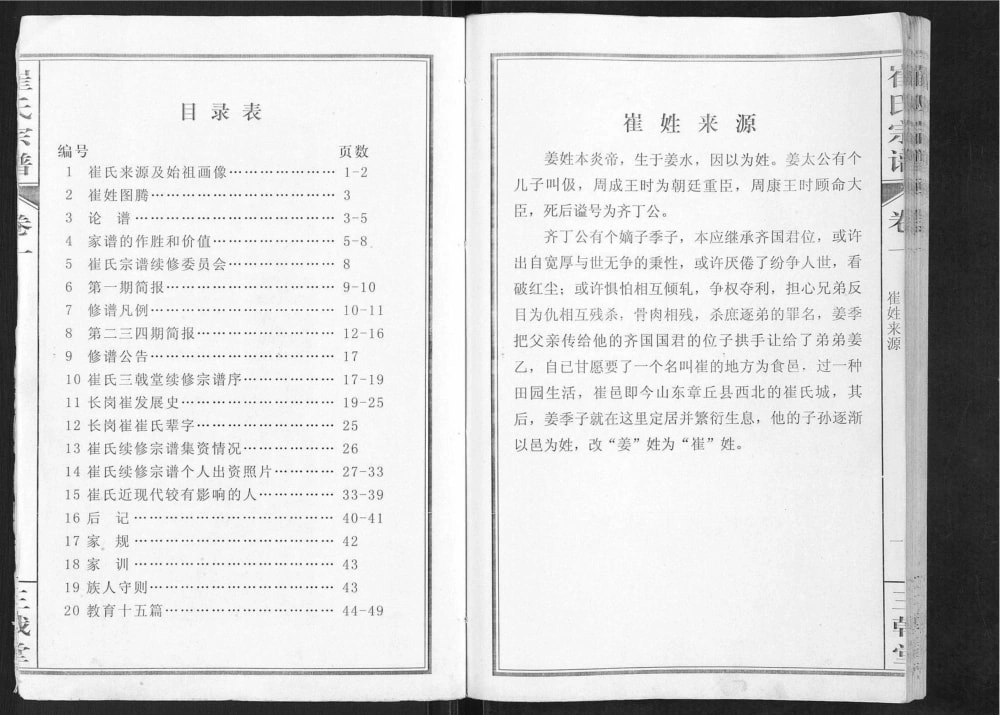 崔氏宗谱
卷一
三戟堂
目录表
编号 页数
1 崔氏来源及始祖画像………………… 1-2
2 崔姓图腾……………………………… 3
3 论 谱……………………………… 3-5
4 家谱的作胜和价值…………………… 5-8
5 崔氏宗谱续修委员会………………… 8
6 第一期简报…………………………… 9-10
7 修谱凡例……………………………… 10-11
8 第二三四期简报……………………… 12-16
9 修谱公告……………………………… 17
10 崔氏三戟堂续修宗谱序……………… 17-19
11 长岗崔发展史………………………… 19-25
12 长岗崔崔氏辈字……………………… 25
13 崔氏续修宗谱集资情况……………… 26
14 崔氏续修宗谱个人出资照片………… 27-33
15 崔氏近现代较有影响的人…………… 33-39
16 后 记………………………………… 40-41
17 家 规………………………………… 42
18 家 训………………………………… 43
19 族人守则……………………………… 43
20 教育十五篇…………………………… 44-49
崔姓来源
姜姓本炎帝，生于姜水，因以为姓。姜太公有个
儿子叫伋，周成王时为朝廷重臣，周康王时顾命大
臣，死后谥号为齐丁公。
齐丁公有个嫡子季子，本应继承齐国君位，或许
出自宽厚与世无争的秉性，或许厌倦了纷争人世，看
破红尘；或许惧怕相互倾轧，争权夺利，担心兄弟反
目为仇相互残杀，骨肉相残，杀庶逐弟的罪名，姜季
把父亲传给他的齐国国君的位子拱手让给了弟弟姜
乙，自已甘愿要了一个名叫崔的地方为食邑，过一种
田园生活，崔邑即今山东章丘县西北的崔氏城，其
后，姜季子就在这里定居并繁衍生息，他的子孙逐渐
以邑为姓，改“姜”姓为“崔”姓。
崔氏宗谱
卷一
崔姓来源
一
三戟堂